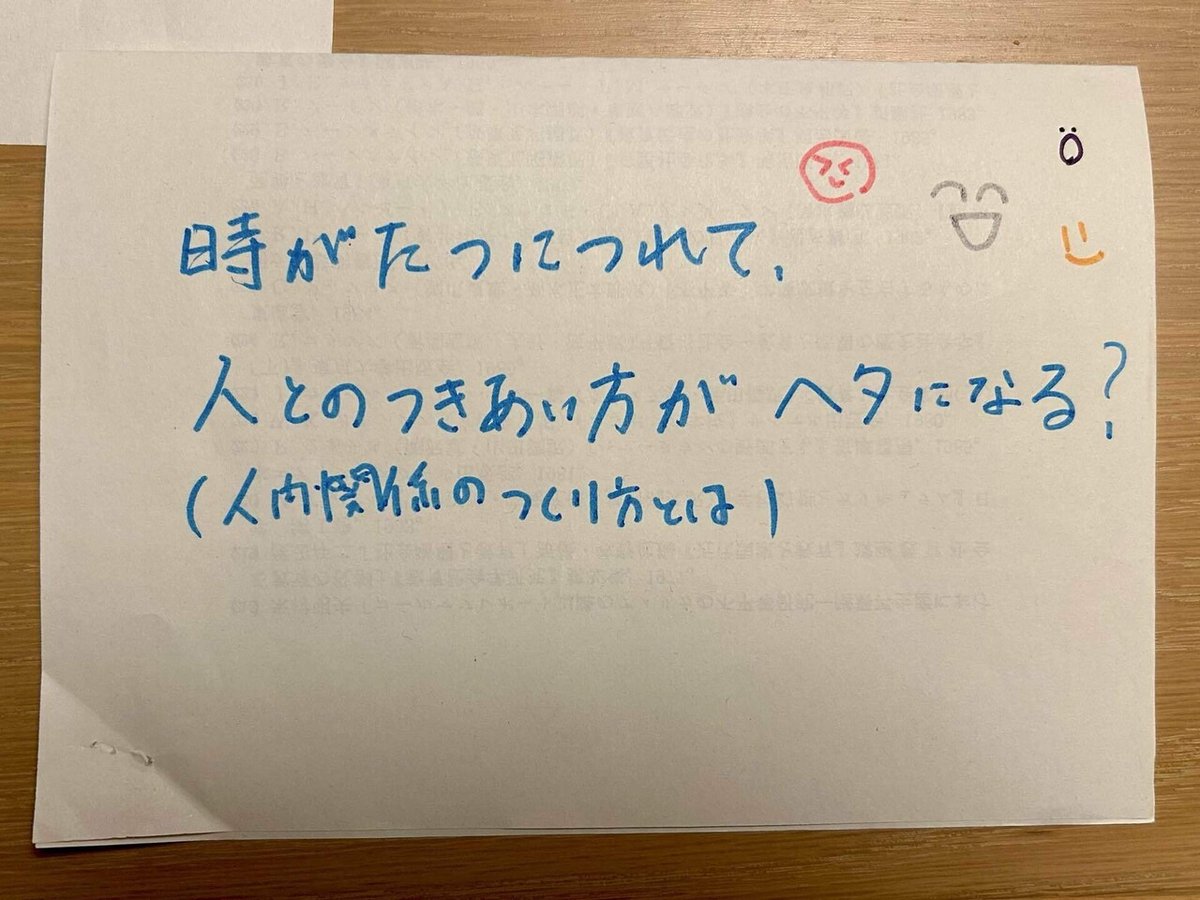 時がたつにつれて、
人とのつきあい方がヘタになる?
(人内関係のつくり方とは)